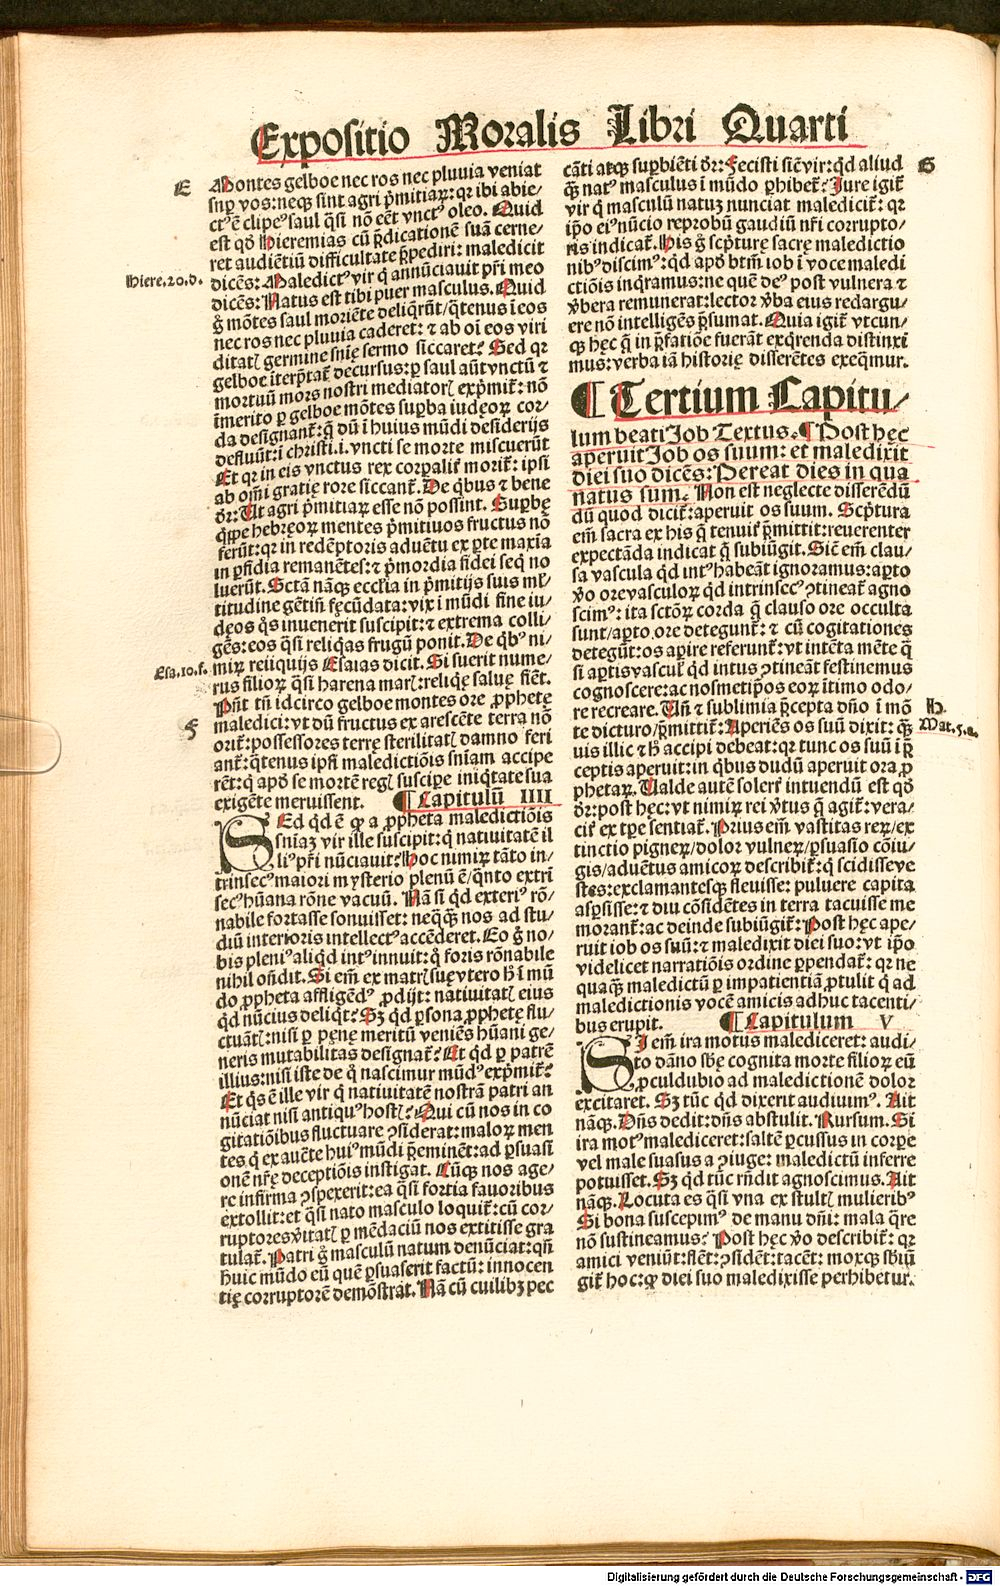 Expositio Moralis Libri Quarti
E
Montes gelboe nec ros nec pluuia veniat
suꝑ vos: neqꝫ sint agri p̄mitiaꝝ: qꝛ ibi abie/
ctꝰ ē clipeꝰ saul q̄si nō eēt vnctꝰ oleo. Quid
est qḋ Hieremias cū p̄dicationē suā cerne/
ret audiētiū difficultate p̄pediri: maledicit
Hiere.20.d.
dicēs: Maledictꝰ vir q̇ annūciauit pr̄i meo
dicēs: Natus est tibi puer masculus. Quid
g̊ mōtes saul moriēte deliq̄rūt/q̄tenus ī eos
nec ros nec pluuia caderet: ⁊ ab oī eos viri
ditatꝭ germine snīę sermo siccaret? Sed qꝛ
gelboe īterp̄tat̄ decursus: ꝑ saul aūt vnctū ⁊
mortuū mors nostri mediatorꝭ exp̄mit̄: nō
īmerito ꝑ gelboe mōtes suꝑba iudęoꝝ cor/
da designant̄: q̄ dū ī huius mūdi desiderijs
defluūt: ī christi .i. vncti se morte miscuerūt
Et qꝛ in eis vnctus rex corꝑaliť morit̄: ipsi
ab omī gratię rore siccant̄. De q̇bus ⁊ bene
dr̄: Ut agri p̄mitiaꝝ esse nō possint. Suꝑbę
q̇ppe hebręoꝝ mentes p̄mitiuos fructus nō
ferūt: qꝛ in redēptoris aduētu ex ꝑte maxīa
in ꝑfidia remanētes: ⁊ p̄mordia fidei seq̇ no
luerūt. Sctā nāqꝫ ecclīa in p̄mitijs suis ml̄/
titudine gētiū fęcūdata: vix ī mūdi fine iu/
dęos q̇s inuenerit suscipit: ⁊ extrema colli/
gēs: eos q̄si reliq̇as frugū ponit. De q̇bꝰ ni/
Esa.10.f.
miꝝ reliquijs Esaias dicit. Si fuerit nume/
rus filioꝝ q̄si harena marꝭ: reliq̇ę saluę fiēt.
Pn̄t tn̄ idcirco gelboe montes ore ꝓphetę
F
maledici: vt dū fructus ex arescēte terra nō
orit̄: possessores terrę sterilitatꝭ damno feri
ant̄: q̄tenus ipsi maledictiōis snīam accipe
rēt: q̇ apḋ se mortē regꝭ suscipe iniq̇tate sua
exigēte meruissent. ¶ Capitulū IIII
SEd q̇d ē ꝙ a ꝓpheta maledictiōis
snīaꝫ vir ille suscipit: q̇ natiuitatē il
liꝰ pr̄i nūciauit? Hoc nimiꝝ tāto in/
trinsecꝰ maiori mysterio plenū ē/q̄nto extrī
secꝰ hūana rōne vacuū. Nā si q̇d exteriꝰ rō/
nabile fortasse sonuisset: neq̄qꝫ nos ad stu/
diū interioris intellectꝰ accēderet. Eo g̊ no/
bis pleniꝰ aliq̇d intꝰ innuit: q̊ foris rōnabile
nihil on̄dit. Si em̄ ex matrꝭ suę vtero h̄ ī mū
do ꝓpheta affligēdꝰ ꝓdijt: natiuitatꝭ eius
q̇d nūcius deliq̇t? Sꝫ q̇d ꝑsona ꝓphetę flu/
ctuātꝭ: nisi ꝑ pęnę meritū veniēs hūani ge/
neris mutabilitas designat̄? Et q̇d ꝑ patrē
illius: nisi iste de q̊ nascimur mūdꝰ exp̄mit̄?
Et q̇s ē ille vir q̇ natiuitatē nostrā patri an
nūciat nisi antiquꝰ hostꝭ? Qui cū nos in co
gitatiōibus fluctuare ꝯsiderat: maloꝝ men
tes q̇ ex auētē huiꝰ mūdi p̄eminēt: ad ꝑsuasi
onē nr̄ę deceptiōis instigat. Cūqꝫ nos age/
re infirma ꝯspexerit: ea q̄si fortia fauoribus
extollit: et q̄si nato masculo loquit̄: cū cor/
ruptores ꝟitatꝭ ꝑ mēdaciū nos extitisse gra
tulat̄. Patri g̊ masculū natum denūciat: qn̄
huic mūdo eū quē ꝑsuaserit factū: innocen
tię corruptorē demōstrat. Nā cū cuilibꝫ pec
cāti atqꝫ suꝑbiēti dr̄: Fecisti sic̄ vir: q̇d aliud
G
qꝫ natꝰ masculus ī mūdo ꝑhibet̄? Iure igit̄
vir q̇ masculū natuꝫ nunciat maledicit̄: qꝛ
ip̄o eiꝰ nūcio reprobū gaudiū nr̄i corrupto/
ris indicat̄. His g̊ scp̄turę sacrę maledictio
nibꝰ discimꝰ: q̇d apḋ btm̄ iob ī voce maledi
ctiōis inq̇ramus: ne quē deꝰ post vulnera ⁊
ꝟbera remunerat: lector ꝟba eius redargu/
ere nō intelligēs p̄sumat. Quia igit̄ vtcun/
qꝫ hęc q̄ in p̄fatiōe fuerāt exq̇renda distinxi
mus: verba iā historię disserētes exeq̇mur.
¶ Tertium Capitu/
lum beati Job Textus. ¶ Post hęc
aperuit Job os suum: et maledixit
diei suo dicēs: Pereat dies in qua
natus sum. Non est neglecte disserēdū
dū quod dicit̄: aperuit os suum. Scp̄tura
em̄ sacra ex his q̄ tenuiť p̄mittit: reuerenter
expectāda indicat q̄ subiūgit. Sic̄ em̄ clau/
sa vascula q̇d intꝰ habeāt ignoramus: aꝑto
ꝟo ore vasculoꝝ q̇d intrinsecꝰ ꝯtineat̄ agno
scimꝰ: ita sctōꝝ corda q̄ clauso ore occulta
sunt/aꝑto ore detegunt̄: ⁊ cū cogitationes
detegūt: os aꝑire referunt̄: vt intēta mēte q̄
si aꝑtis vasculť q̇d intus ꝯtineāt festinemus
cognoscere: ac nosmetip̄os eoꝝ ītimo odo/
H.
re recreare. Un̄ ⁊ sublimia p̄cepta dn̄o ī mō
Mat.5.a.
te dicturo/p̄mittit̄: Aperiēs os suū dixit: qꝫ
uis illic ⁊ h̄ accipi debeat: qꝛ tunc os suū ī p̄
ceptis aperuit: in q̇bus dudū aperuit ora ꝓ
phetaꝝ. Ualde autē solerť intuendū est qḋ
dr̄: post hęc: vt nimiꝝ rei ꝟtus q̄ agit̄: vera/
citť ex tꝑe sentiat̄. Prius em̄ vastitas reꝝ/ex
tinctio pigneꝝ/dolor vulneꝝ/ꝑsuasio cōiu/
gis/aduētus amicoꝝ describit̄: q̇ scidisse ve
stes: exclamantesqꝫ fleuisse: puluere capita
asꝑsisse: ⁊ diu cōsidētes in terra tacuisse me
morant̄: ac deinde subiūgit̄: Post hęc ape/
ruit iob os suū: ⁊ maledixit diei suo: vt ip̄o
videlicet narratiōis ordine ꝑpendat̄: qꝛ ne
quaqꝫ maledictū ꝑ impatientiā ꝓtulit q̇ ad
maledictionis vocē amicis adhuc tacenti/
bus erupit. ¶ Capitulum V
SI em̄ ira motus malediceret: audi/
to dāno sb̄ę cognita morte filioꝝ eū
ꝓculdubio ad maledictionē dolor
excitaret. Sꝫ tūc q̇d dixerit audiuimꝰ. Ait
nāqꝫ. Dn̄s dedit: dn̄s abstulit. Rursum. Si
ira motꝰ malediceret: saltē ꝑcussus in corꝑe
vel male suasus a ꝯiuge: maledictū inferre
potuisset. Sꝫ q̇d tūc rn̄dit agnoscimus. Ait
nāqꝫ. Locuta es q̄si vna ex stultꝭ mulieribꝰ
Si bona suscepimꝰ de manu dn̄i: mala q̄re
nō sustineamus? Post hęc ꝟo describit̄: qꝛ
amici veniūt: flēt: ꝯsidēt: tacēt: moxqꝫ sbiū
git̄ hoc: ꝙ diei suo maledixisse perhibetur.
Digitalisierung gefördert durch die Deutsche Forschungsgemeinschaft - DFG